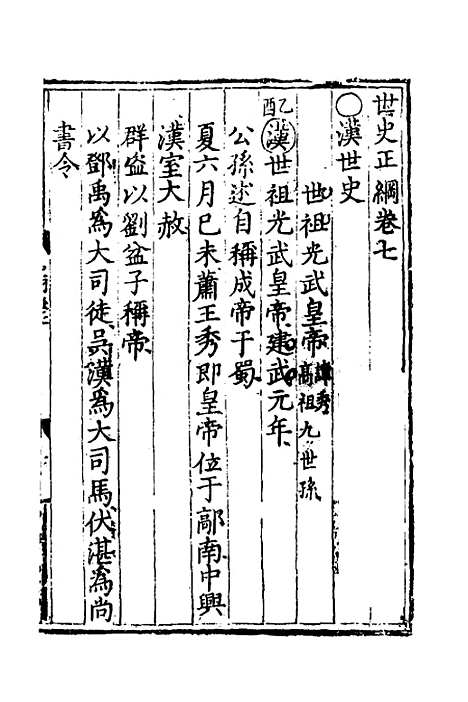 世史正綱卷七
○漢世史
世祖光武皇帝諱秀高祖九世孫
乙酉漢世祖光武皇帝建武元年
公孫述自稱成帝于蜀
夏六月己未蕭王秀即皇帝位于鄗南中興
漢室大赦
群盜以劉盆子稱帝
以鄧禹爲大司徒吳漢爲大司馬伏湛爲尚
書令